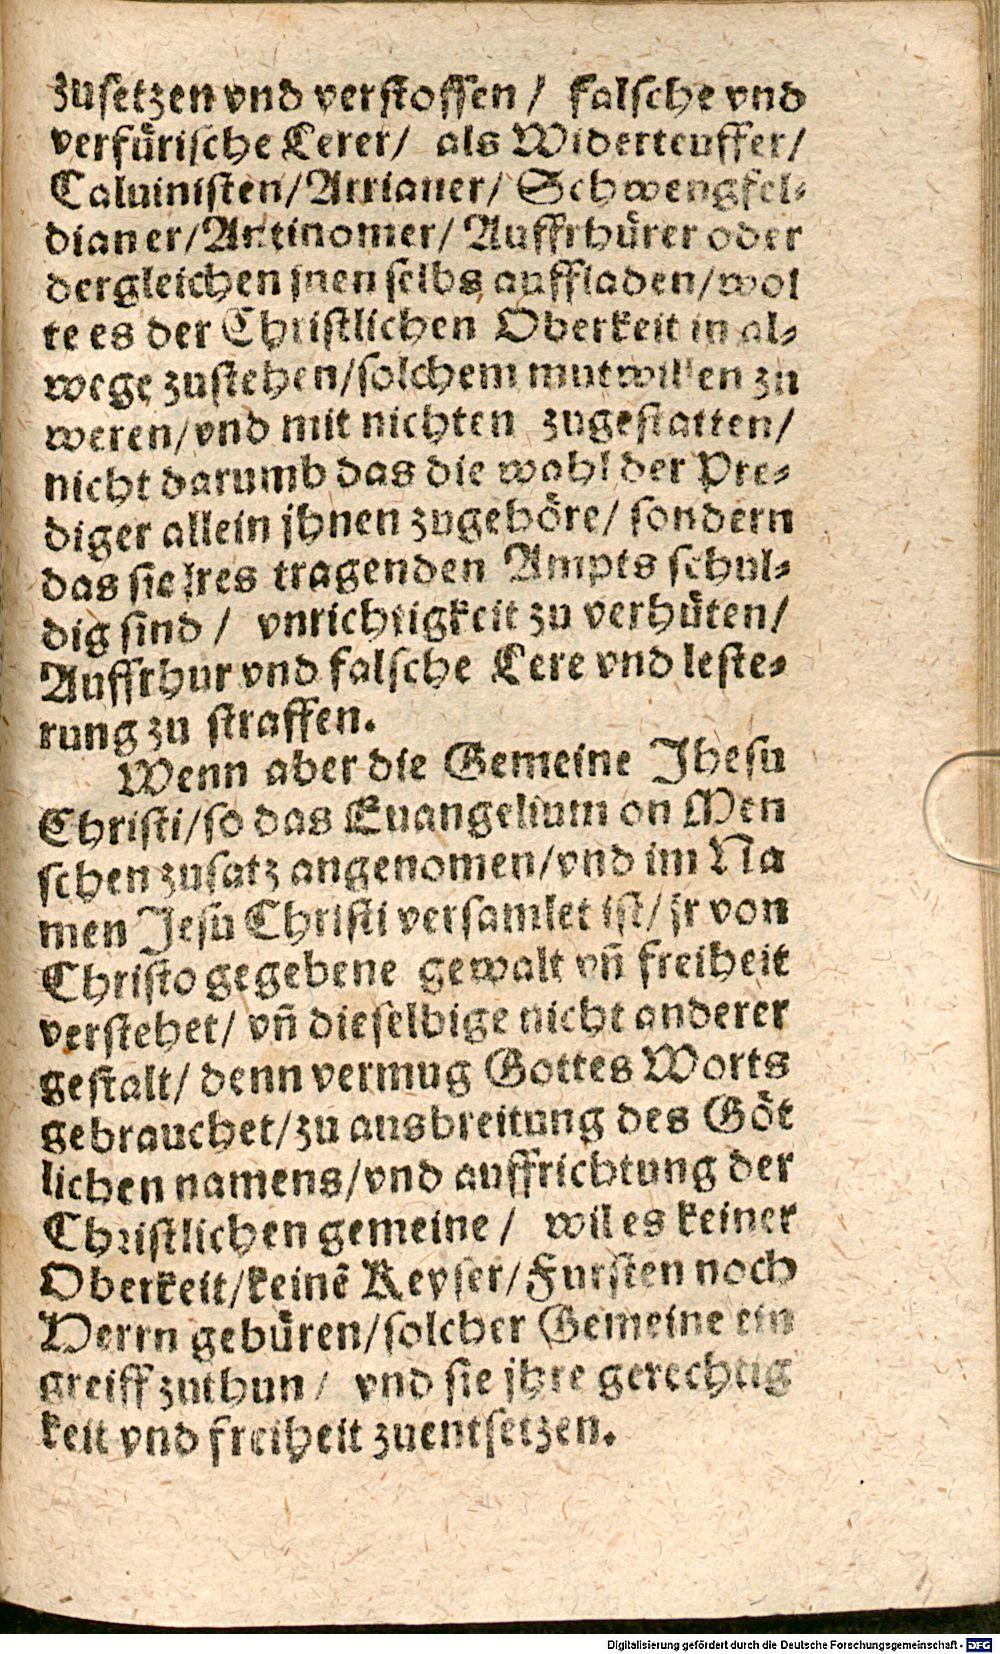 zusetzen vnd verstossen / falsche vnd
verfürische Lerer/ als Widerteuffer/
Caluinisten/Arrianer/ Schwengfel-
dianer/Antinomer/ Auffrhürer oder
dergleichen jnen selbs auffladen/wol
te es der Christlichen Oberkeit in al-
wege zustehen/solchem mutwillen zu
weren/vnd mit nichten zugestatten/
nicht darumb das die wahl der Pre-
diger allein jhnen zugehöre/ sondern
das sie jres tragenden Ampts schul-
dig sind / vnrichtigkeit zu verhüten/
Auffrhur vnd falsche Lere vnd leste-
rung zu straffen.
Wenn aber die Gemeine Jhesu
Christi/so das Euangelium on Men
schen zusatz angenomen/vnd im Na
men Jesu Christi versamlet ist/ jr von
Christo gegebene gewalt vñ freiheit
verstehet/ vñ dieselbige nicht anderer
gestalt/ denn vermug Gottes Worts
gebrauchet/zu ausbreitung des Göt
lichen namens/vnd auffrichtung der
Christlichen gemeine / wil es keiner
Oberkeit/keinē Keyser/Fursten noch
Herrn gebüren/solcher Gemeine ein
greiff zuthun / vnd sie jhre gerechtig
keit vnd freiheit zuentsetzen.
Digitalisierung gefördert durch die Deutsche Forschungsgemeinschaft - DFG